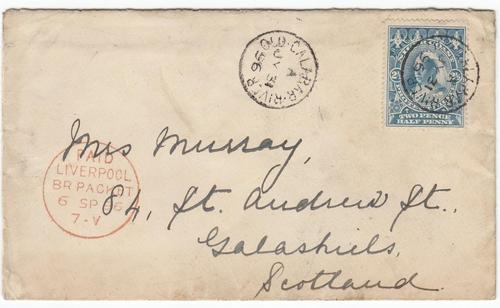 OLD·CALABAR·RIVER 95
A
TWO PENCE
HALF PENNY
PAID
LIVERPOOL
BR PACKET
6 SP 6
7-V
Mrs Murray,
84, St. Andrew St.,
Galashiels,
Scotland.